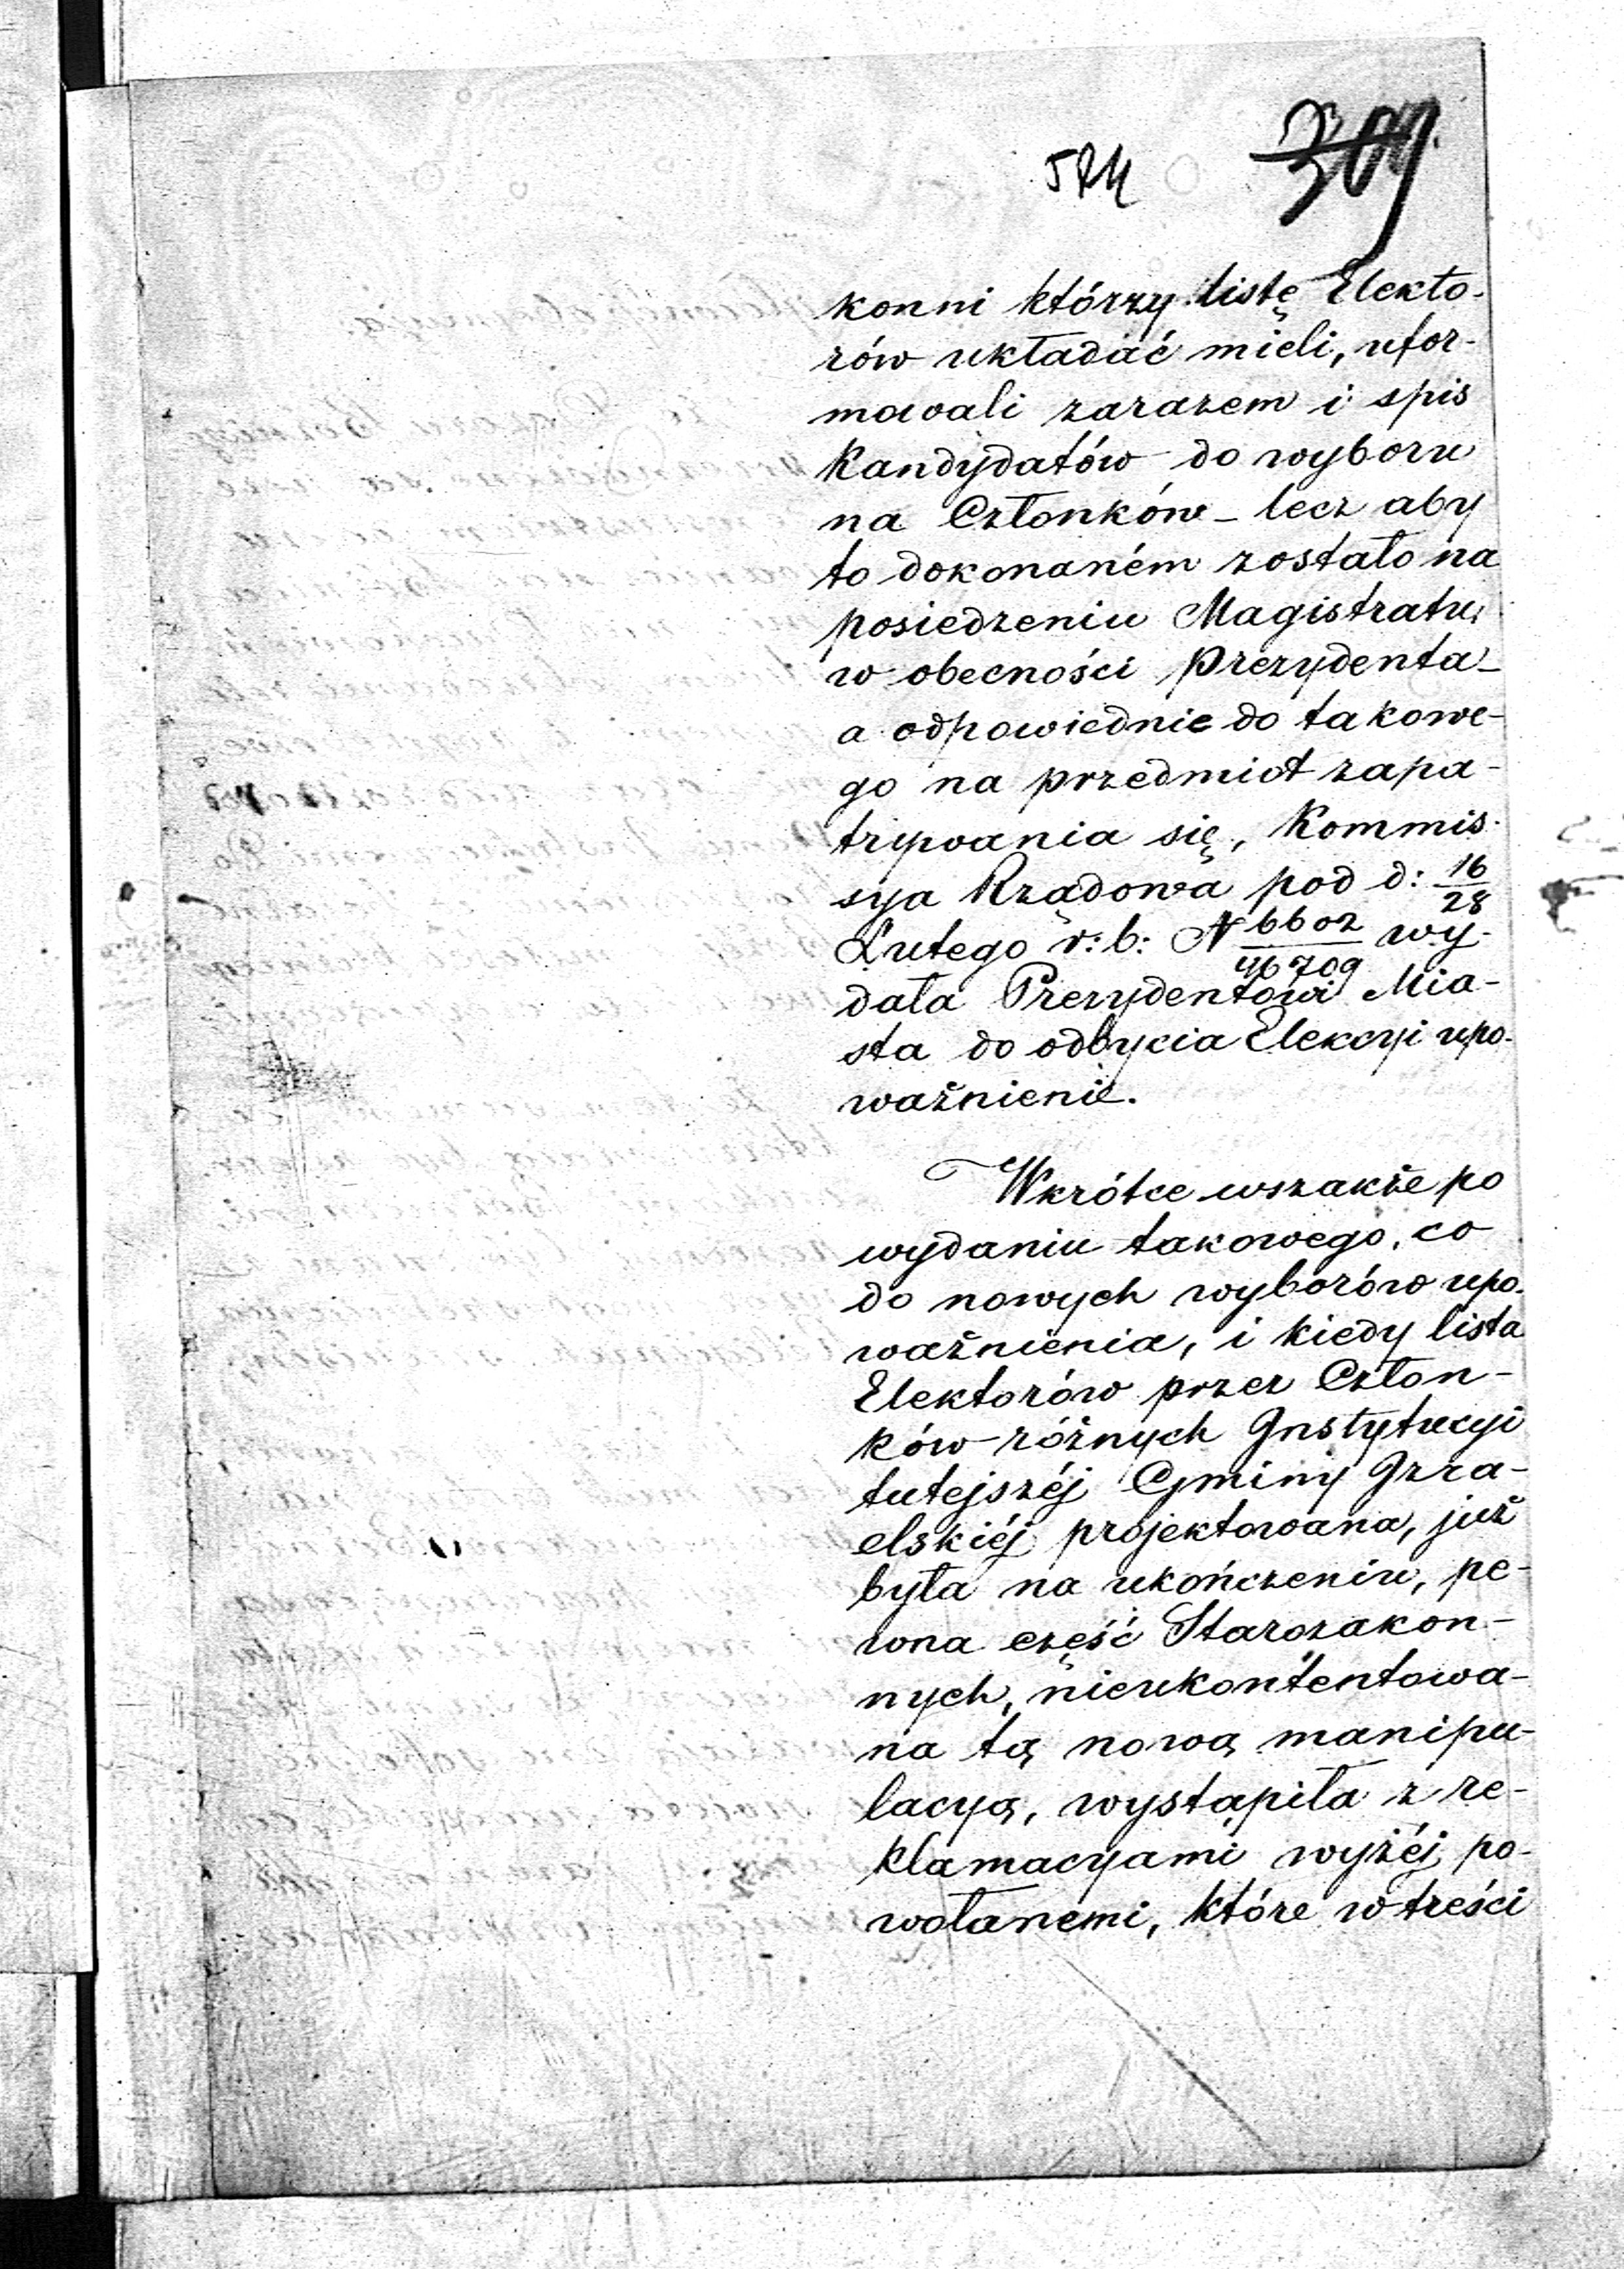 309.
konni którzy listę Elekto-
rów układać mieli, ufor-
mowali zarazem i spis
Kandydatów do wyboru
na Członków – lecz aby
to dokonaném zostało na
posiedzeniu Magistratu,
w obecności Prezydenta –
a odpowiednie do takowe-
go na przedmiot zapa-
trywania się, Kommis-
sya Rządowa pod d: 16/28
Lutego r: b: N 6602/46709 wy-
dała Prezydentowi Mia-
sta do odbycia Elekcyi upo-
ważnienie.
Wkrótce wszakże po
wydaniu takowego, co
do nowych wyborów upo-
ważnienia, i kiedy lista
Elektorów przez Człon-
ków różnych Instytucyi
tutejszéj Gminy Izra-
elskiéj projektowana, już
była na ukończeniu, pe-
wna część Starozakon-
nych, nieukontentowa-
na tą nową manipu-
lacyą, wystąpiła z re-
klamacyami wyżéj po-
wołanemi, które w treści